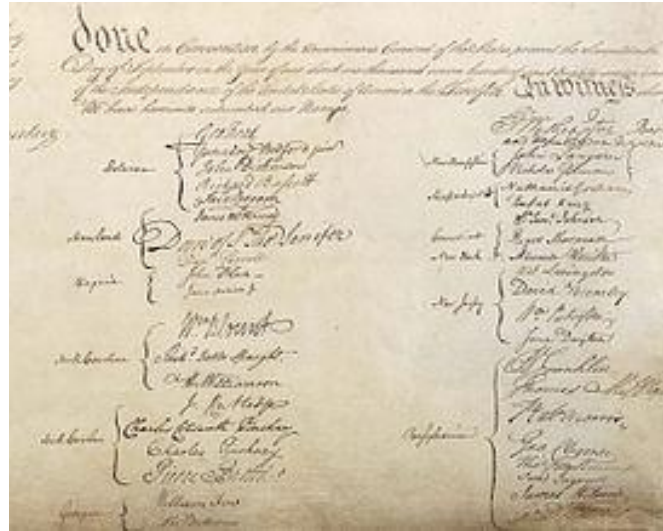 done in Convention by the Unanimous Consent of the States present the Seventeenth
Day of September in the Year of our Lord one thousand seven hundred and
of the Independance of the United States of America the Twelfth In Witness
We have hereunto subscribed our Names
Delaware
Geo: Read
Gunning Bedford jun
John Dickinson
Richard Bassett
Jaco: Broom
Maryland
James McHenry
Dan of St Thos Jenifer
Danl Carroll
Virginia
John Blair
James Madison Jr
North Carolina
Wm Blount
Richd Dobbs Spaight
Hu Williamson
South Carolina
J. Rutledge
Charles Cotesworth Pinckney
Charles Pinckney
Pierce Butler
Georgia
William Few
Abr Baldwin
Go Washington
and deputy from Virginia
New Hampshire
John Langdon
Nicholas Gilman
Massachusetts
Nathaniel Gorham
Rufus King
Connecticut
Wm Saml Johnson
Roger Sherman
New York
Alexander Hamilton
New Jersey
Wil Livingston
David Brearley
Wm Paterson
Jona Dayton
Pensylvania
B Franklin
Thomas Mifflin
Robt Morris
Geo Clymer
Thos FitzSimons
Jared Ingersoll
James Wilson